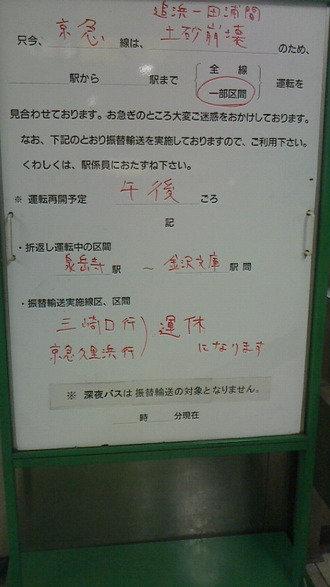 追浜－田浦間
只今、京急線は、土砂崩壊のため、
駅から 駅まで 全線 運転を
一部区間
見合わせております。お急ぎのところ大変ご迷惑をおかけしております。
なお、下記のとおり振替輸送を実施しておりますので、ご利用下さい。
くわしくは、駅係員におたずね下さい。
※ 運転再開予定 午後ごろ
記
・折返し運転中の区間
泉岳寺駅 ～ 金沢文庫駅間
・振替輸送実施線区、区間
三崎口行
京急久里浜行 ) 運休
になります
※ 深夜バスは振替輸送の対象となりません。
時 分現在